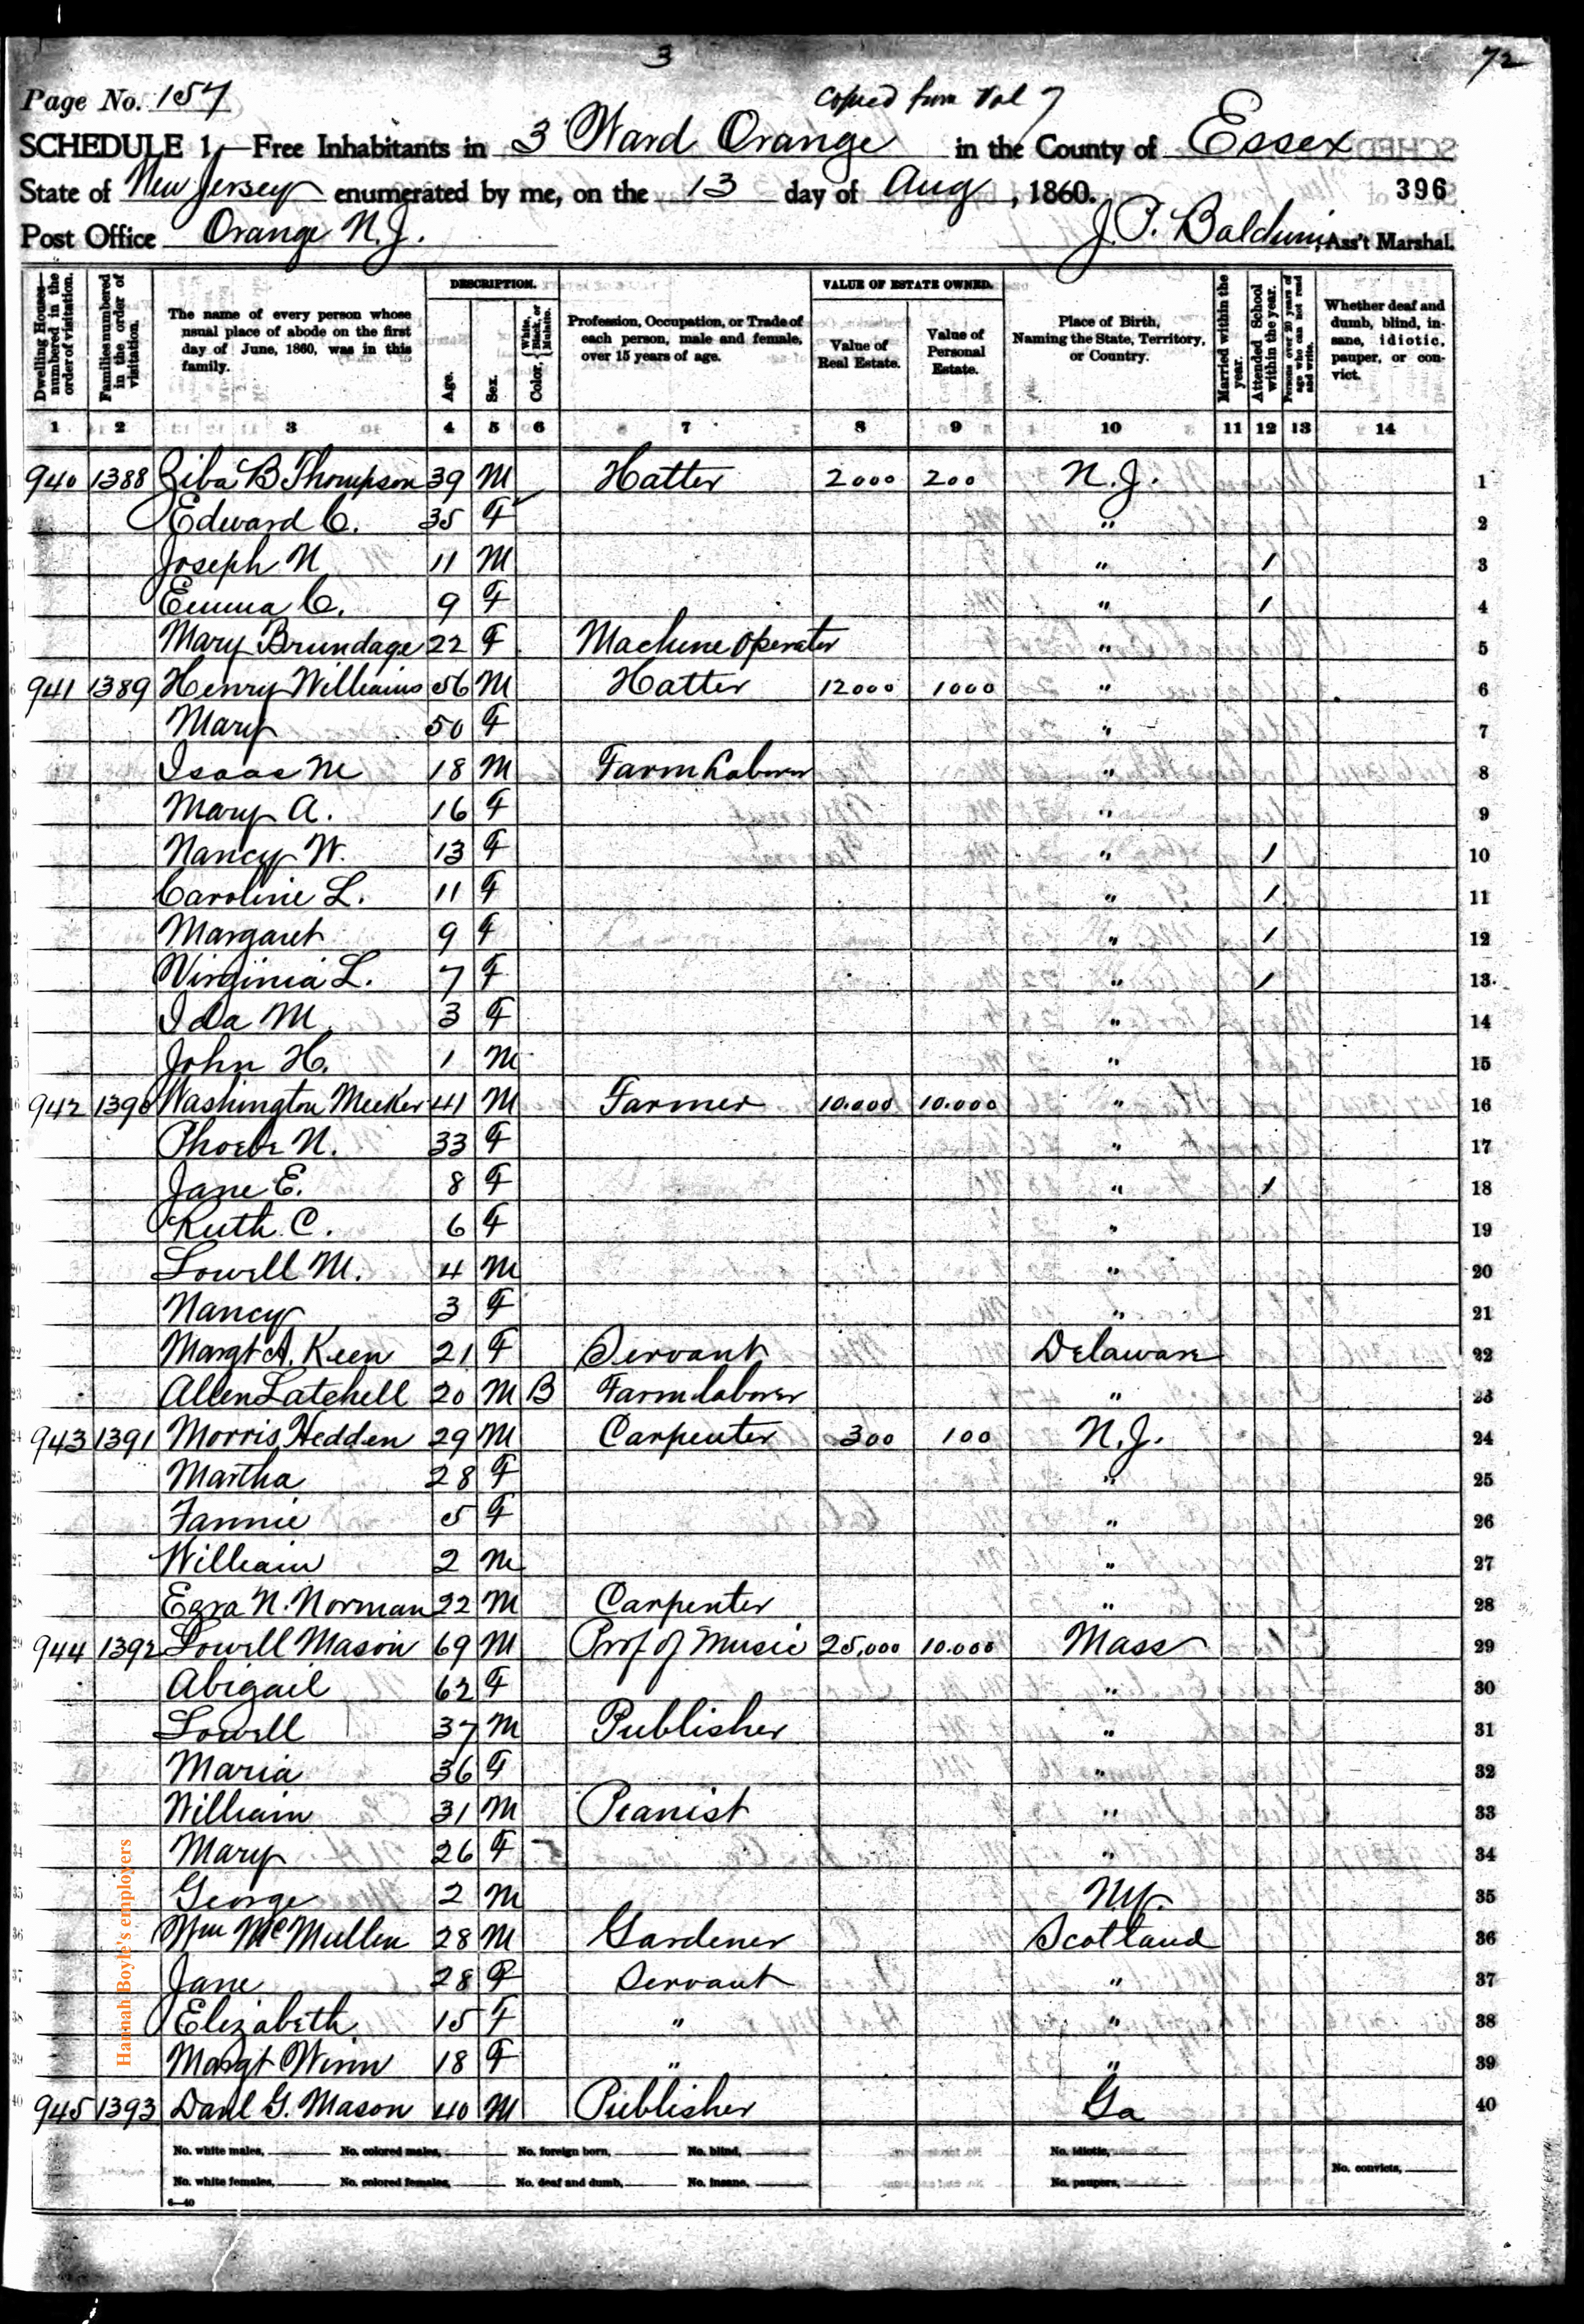 3
72
Page No. 157
Copied from Vol 7
SCHEDULE 1.—Free Inhabitants in 3 Ward Orange in the County of Essex
State of New Jersey enumerated by me, on the 13 day of Aug, 1860. 396
Post Office Orange N.J. J. P. Baldwin, Ass't Marshal.
Dwelling Houses—numbered in the order of visitation.
Families numbered in the order of visitation.
The name of every person whose usual place of abode on the first day of June, 1860, was in this family.
DESCRIPTION.
Age.
Sex.
Color, White, Black, or Mulatto.
Profession, Occupation, or Trade of each person, male and female, over 15 years of age.
VALUE OF ESTATE OWNED.
Value of Real Estate.
Value of Personal Estate.
Place of Birth, Naming the State, Territory, or Country.
Married within the year.
Attended School within the year.
Persons over 20 years of age who can not read and write.
Whether deaf and dumb, blind, insane, idiotic, pauper, or convict.
1 2 3 4 5 6 7 8 9 10 11 12 13 14
940 1388 Ziba B Thompson 39 M Hatter 2000 200 N.J. 1
Edward C. 35 F " 2
Joseph N 11 M " / 3
Emma C. 9 F " / 4
Mary Brundage 22 F Machine Operater " 5
941 1389 Henry Williams 56 M Hatter 12000 1000 " 6
Mary 50 F " 7
Isaac M 18 M Farm Laborer " 8
Mary A. 16 F " 9
Nancy W. 13 F " / 10
Caroline L. 11 F " / 11
Margaret 9 F " / 12
Virginia L. 7 F " / 13
Ida M. 3 F " 14
John H. 1 M " 15
942 1390 Washington Meeker 41 M Farmer 10.000 10.000 " 16
Phoebe N. 33 F " 17
Jane E. 8 F " / 18
Ruth C. 6 F " 19
Lowell M. 4 M " 20
Nancy 3 F " 21
Margt A. Keen 21 F Servant Delaware 22
Allen Latchell 20 M B Farm laborer " 23
943 1391 Morris Hedden 29 M Carpenter 300 100 N.J. 24
Martha 28 F " 25
Fannie 5 F " 26
William 2 M " 27
Ezra N. Norman 22 M Carpenter " 28
944 1392 Lowell Mason 69 M Prof of Music 25,000 10.000 Mass 29
Abigail 62 F " 30
Lowell 37 M Publisher " 31
Maria 36 F " 32
William 31 M Pianist " 33
Mary 26 F " 34
George 2 M N.Y. 35
Wm McMullen 28 M Gardener Scotland 36
Jane 28 F Servant " 37
Elizabeth 15 F " " 38
Margt Winn 18 F " " 39
945 1393 Danl G. Mason 40 M Publisher Ga 40
Hannah Boyle's employers
No. white males, No. colored males, No. foreign born, No. blind, No. idiotic,
No. white females, No. colored females, No. deaf and dumb, No. insane, No. paupers, No. convicts,
6—40